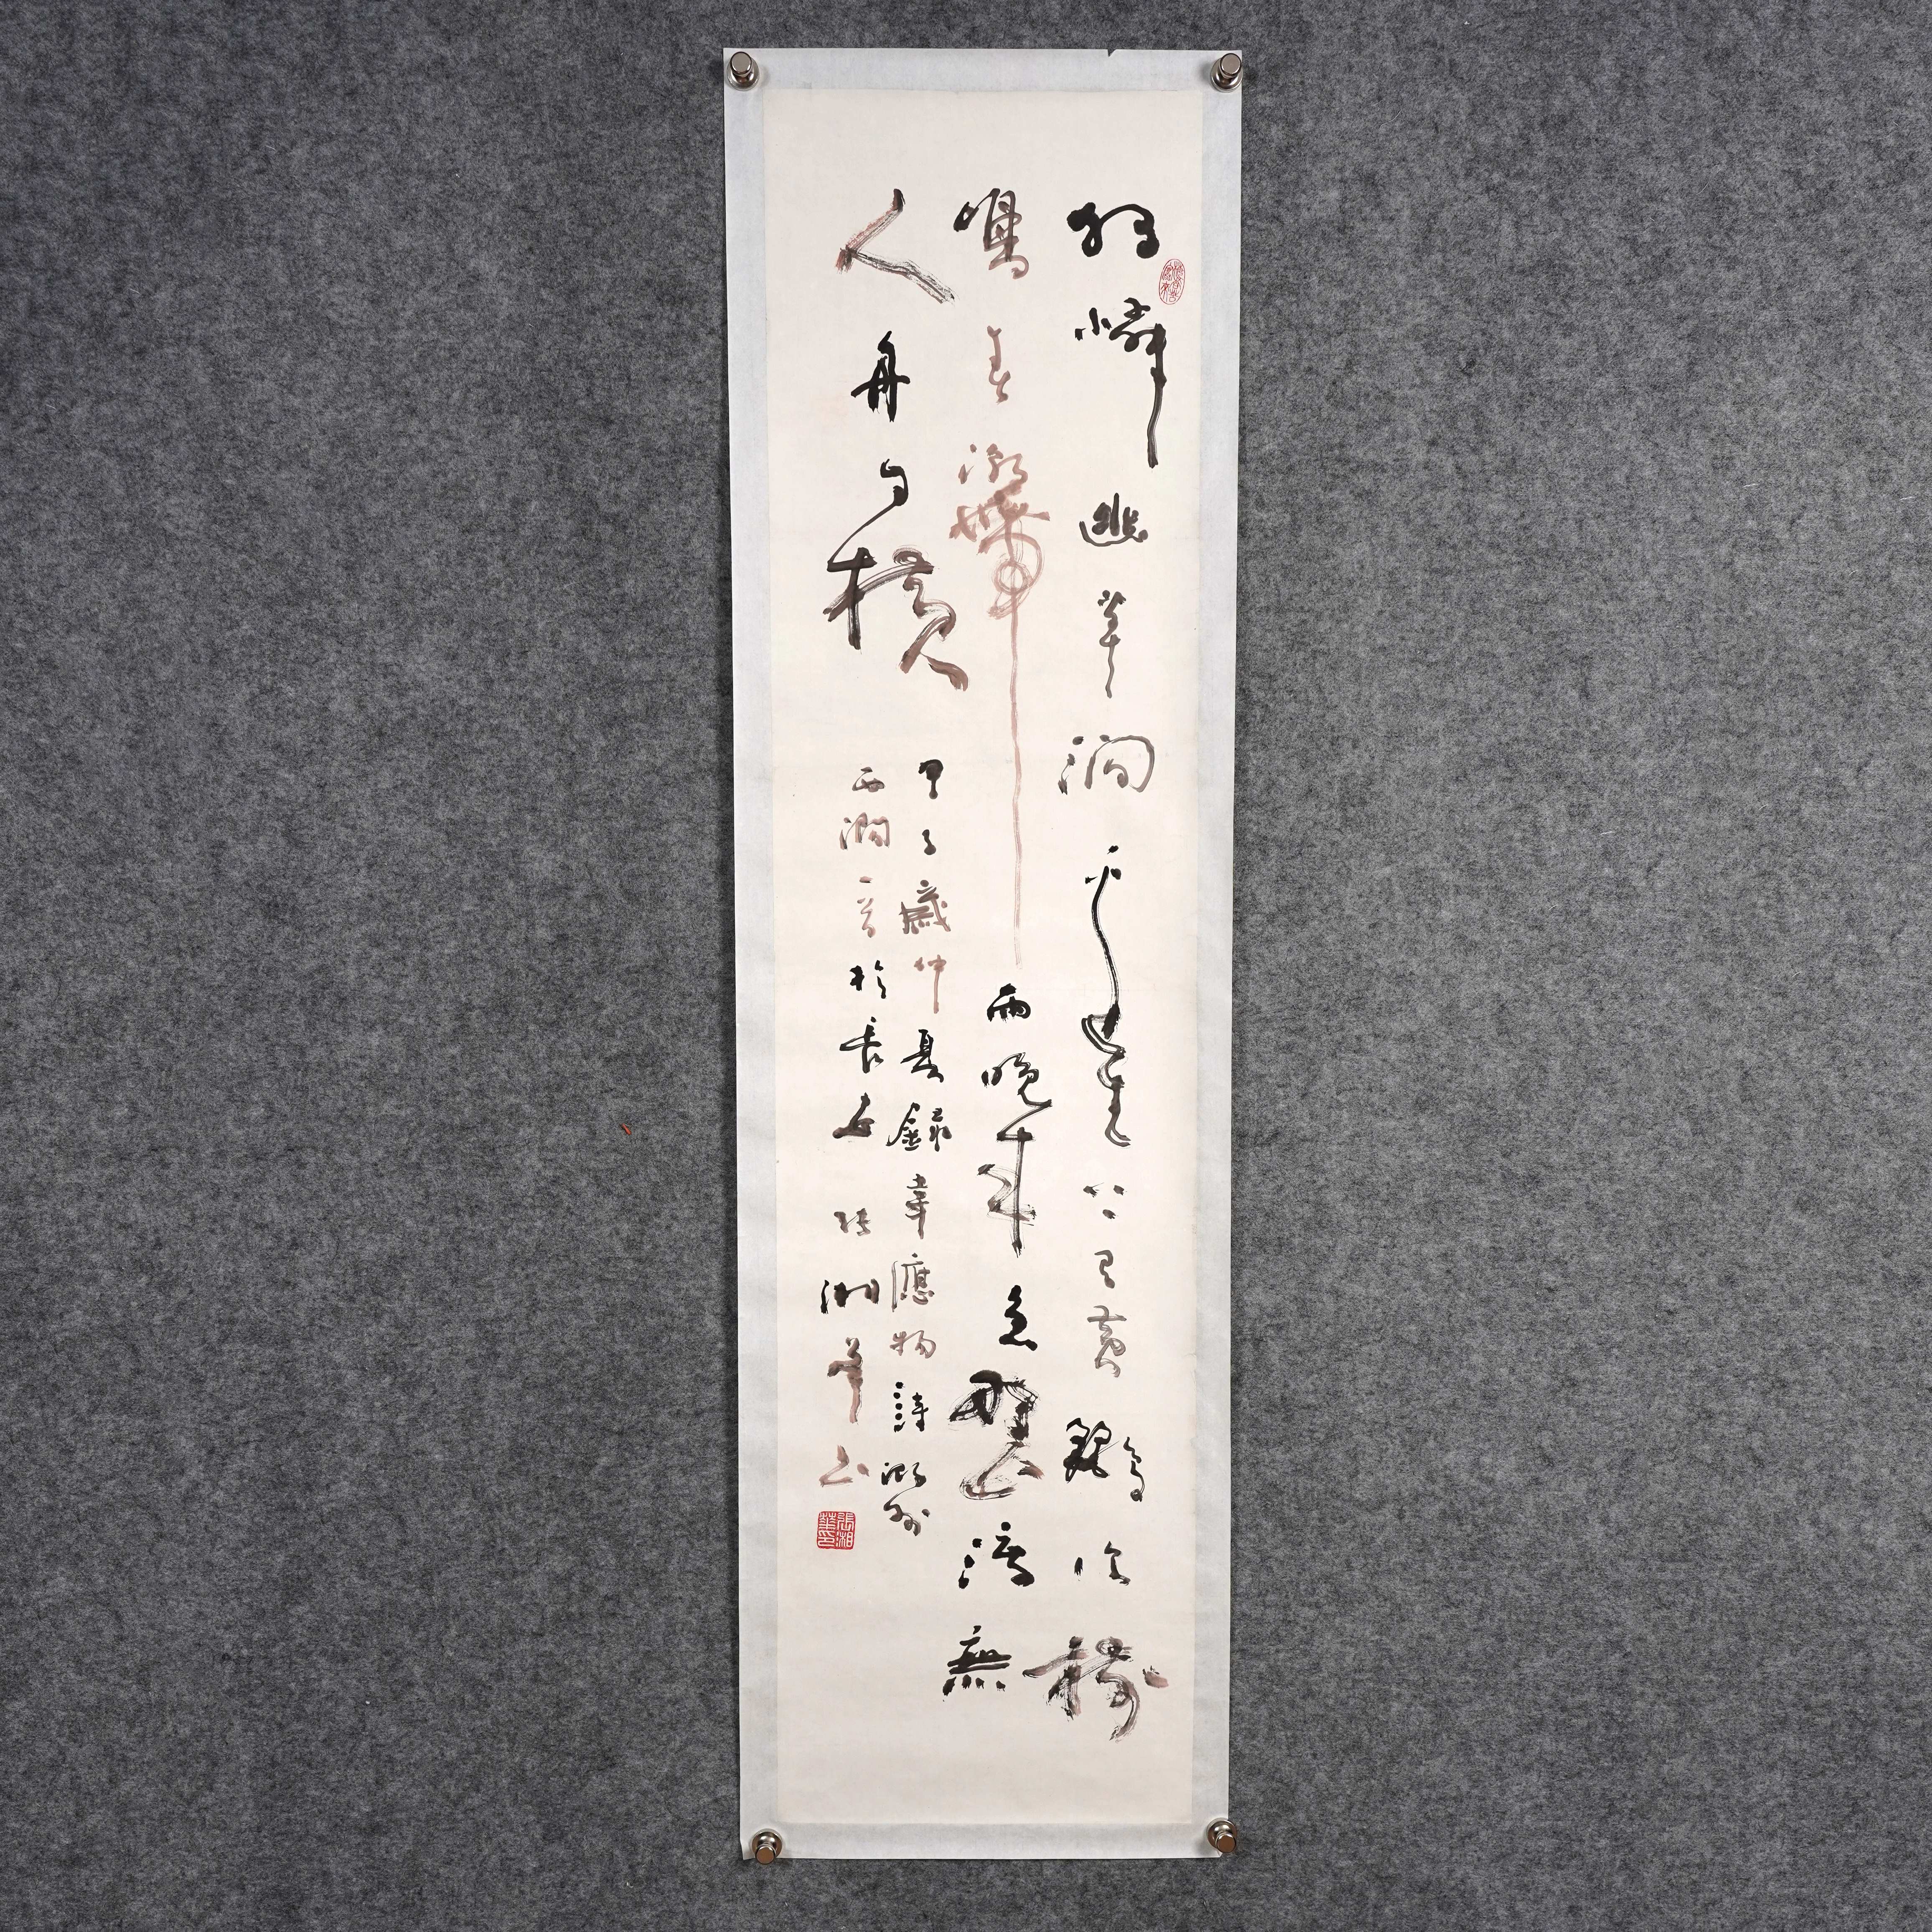 独憐幽草澗邊生上有黄鸝深樹
鳴春潮帶雨晚來急野渡無
人舟自橫
甲子歲仲夏錄韋應物詩滁州
西澗一首於長 張湘華書
張湘華印